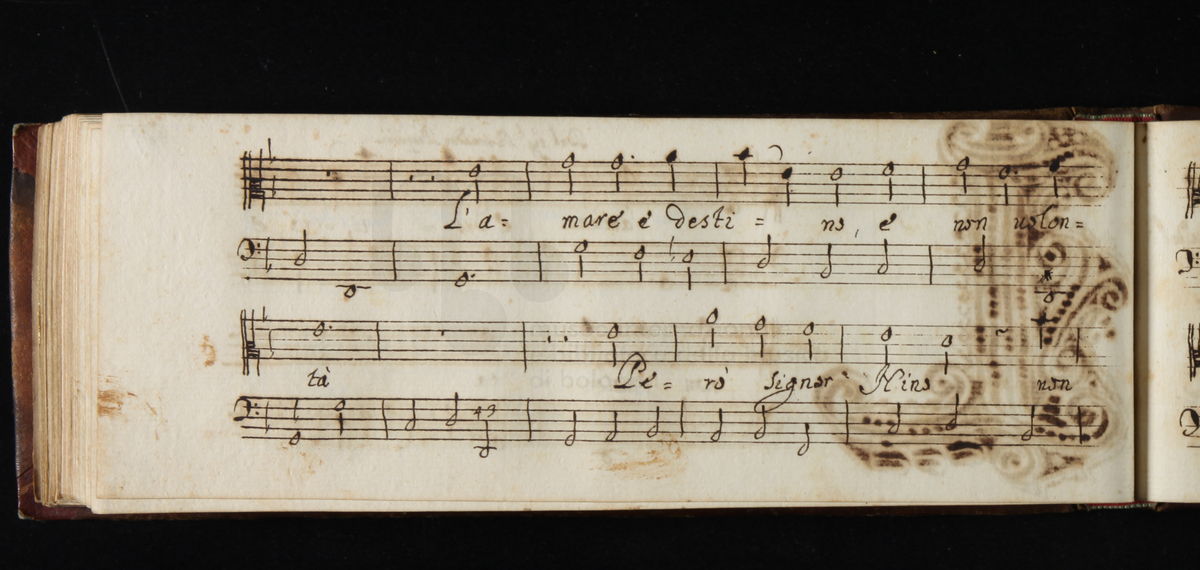 L'a= mare è desti = no, è non uolon=
tà Pe= rò signor Nino non